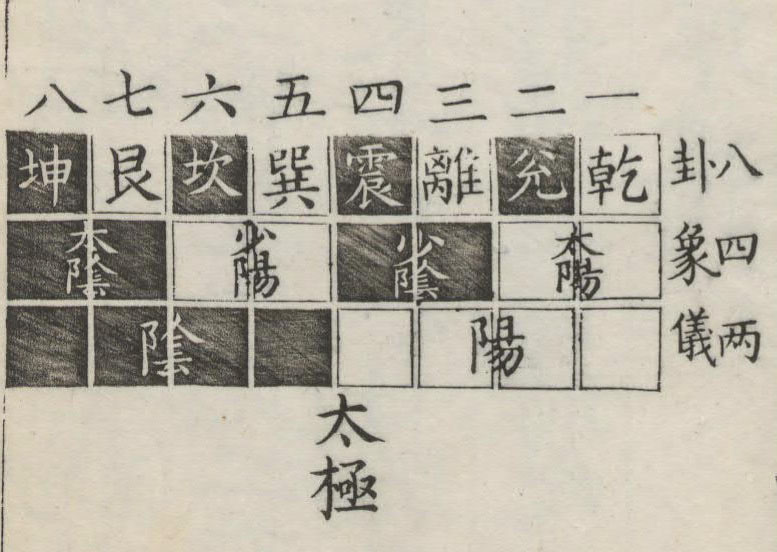 一二三四五六七八
八卦 乾兊離震巽坎艮坤
四象 太陽 少陰 少陽 太陰
两儀 陽 陰
太極